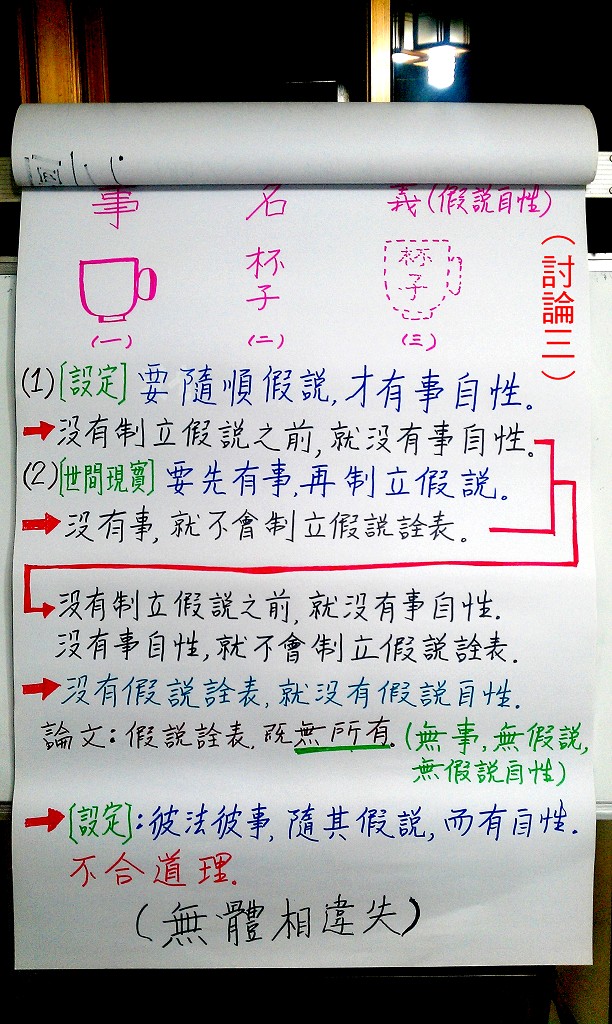 事 名 義(假説自性)
(討論三)
杯子 杯子
(一) (二) (三)
(1)[設定]要隨順假説,才有事自性。
没有制立假説之前,就没有事自性。
(2)[世間現實]要先有事,再制立假説。
没有事,就不會制立假説詮表。
没有制立假説之前,就没有事自性.
没有事自性,就不會制立假説詮表.
没有假説詮表,就没有假説自性.
論文:假説詮表.既無所有.(無事,無假説,
無假説自性)
[設定]:彼法彼事,隨其假説,而有自性.
不合道理.
(無體相違失)